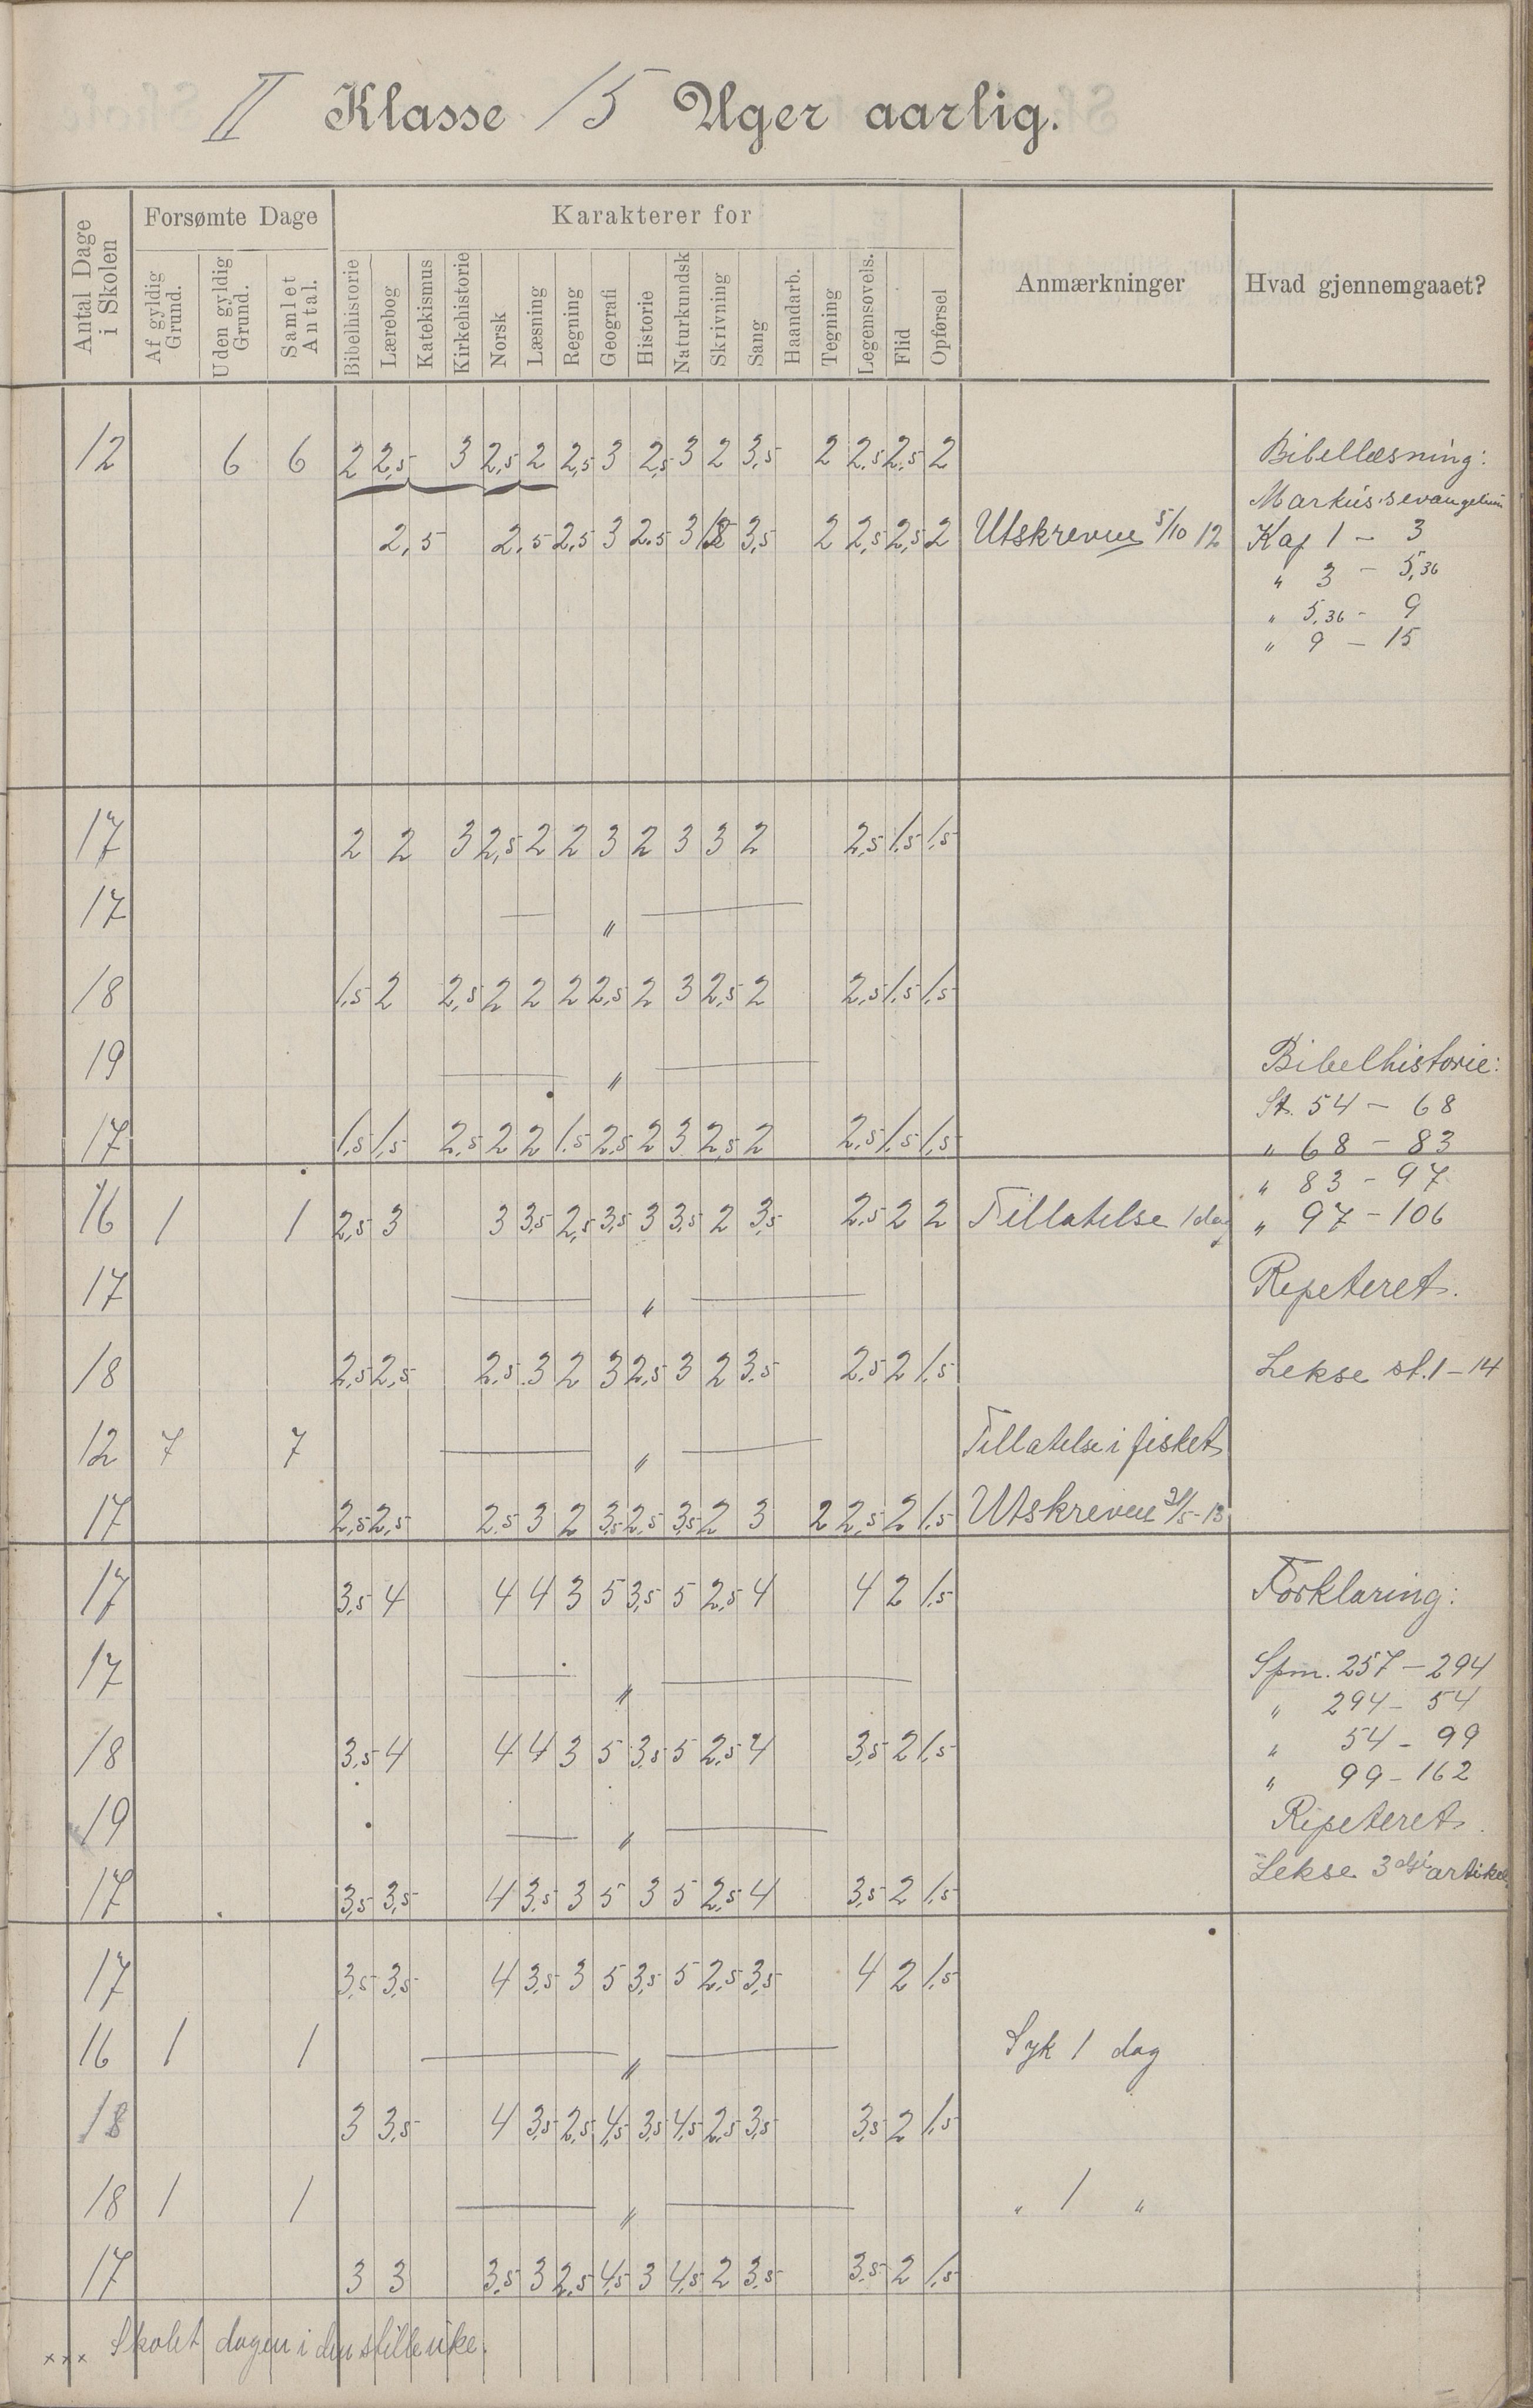 II Klasse 15 Uger aarlig.
Antal Dage i Skolen
Forsømte Dage
Af gyldig Grund.
Uden gyldig Grund.
Samlet Antal.
Karakterer for
Bibelhistorie
Lærebog
Katekismus
Kirkehistorie
Norsk
Læsning
Regning
Geografi
Historie
Naturkundsk
Skrivning
Sang
Haandarb.
Tegning
Legemsøvels.
Flid
Opførsel
Anmærkninger
Hvad gjennemgaaet?
12 6 6 2 2,5 3 2,5 2 2,5 3 2,5 3 2 3,5 2 2,5 2,5 2 Bibellæsning:
Markus's evangelium
2,5 2,5 2,5 3 2.5 3 3,5 2 2,5 2,5 2 Utskreven 5/10 12 Kap 1 - 3
" 3 - 5,36
" 5,36 - 9
" 9 - 15
17 2 2 3 2,5 2 2 3 2 3 3 2 2,5 1,5 1,5
17 — " —
18 1,5 2 2,5 2 2 2 2,5 2 3 2,5 2 2,5 1,5 1,5
19 — " — Bibelhistorie:
St. 54 - 68
17 1,5 1,5 2,5 2 2 1,5 2,5 2 3 2,5 2 2,5 1,5 1,5 " 68 - 83
" 83 - 97
16 1 1 2,5 3 3 3,5 2,5 3,5 3 3,5 2 3,5 2,5 2 2 Tillatelse 1 dag " 97 - 106
17 — " — Repeteret.
18 2,5 2,5 2,5 3 2 3 2,5 3 2 3,5 2,5 2 1,5 Lekse st. 1 - 14
12 7 7 — " — Tillatelse i fisket
17 2,5 2,5 2,5 3 2 3,5 2,5 3,5 2 3 2 2,5 2 1,5 Utskreven
17 3,5 4 4 4 3 5 3,5 5 2,5 4 4 2 1,5 Forklaring:
17 — " — Spm. 257 - 294
" 294 - 54
18 3,5 4 4 4 3 5 3,5 5 2,5 4 3,5 2 1,5 " 54 - 99
" 99 - 162
19 — " — Repeteret.
17 3,5 3,5 4 3,5 3 5 3 5 2,5 4 3,5 2 1,5 Lekse 3dje artikel
17 3,5 3,5 4 3,5 3 5 3,5 5 2,5 3,5 4 2 1,5
16 1 1 — " — Syk 1 dag
18 3 3,5 4 3,5 2,5 4,5 3,5 4,5 2,5 3,5 3,5 2 1,5
18 1 1 — " — " 1 "
17 3 3 3,5 3 2,5 4,5 3 4,5 2 3,5 3,5 2 1,5
××× Skolet dagen i den stille uke.